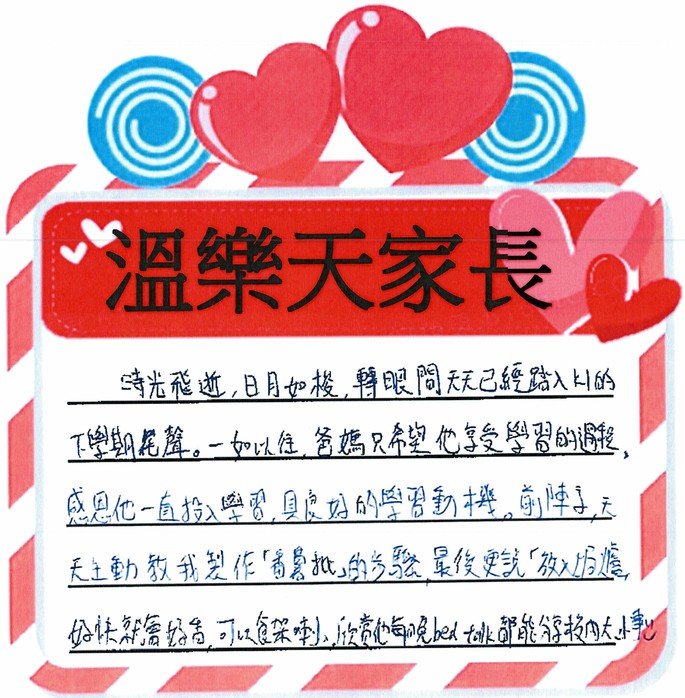 溫樂天家長
時光飛逝,日月如梭,轉眼間天天已經踏入K1的
下學期尾聲。一如以往,爸媽只希望他享受學習的過程,
感恩他一直投入學習,具良好的學習動機。前陣子,天
天主動教我製作「番薯批」的步驟,最後更說「放入焗爐,
好快就會好香,可以食架喇」,欣賞他每晚bed talk都能分享校內大小事